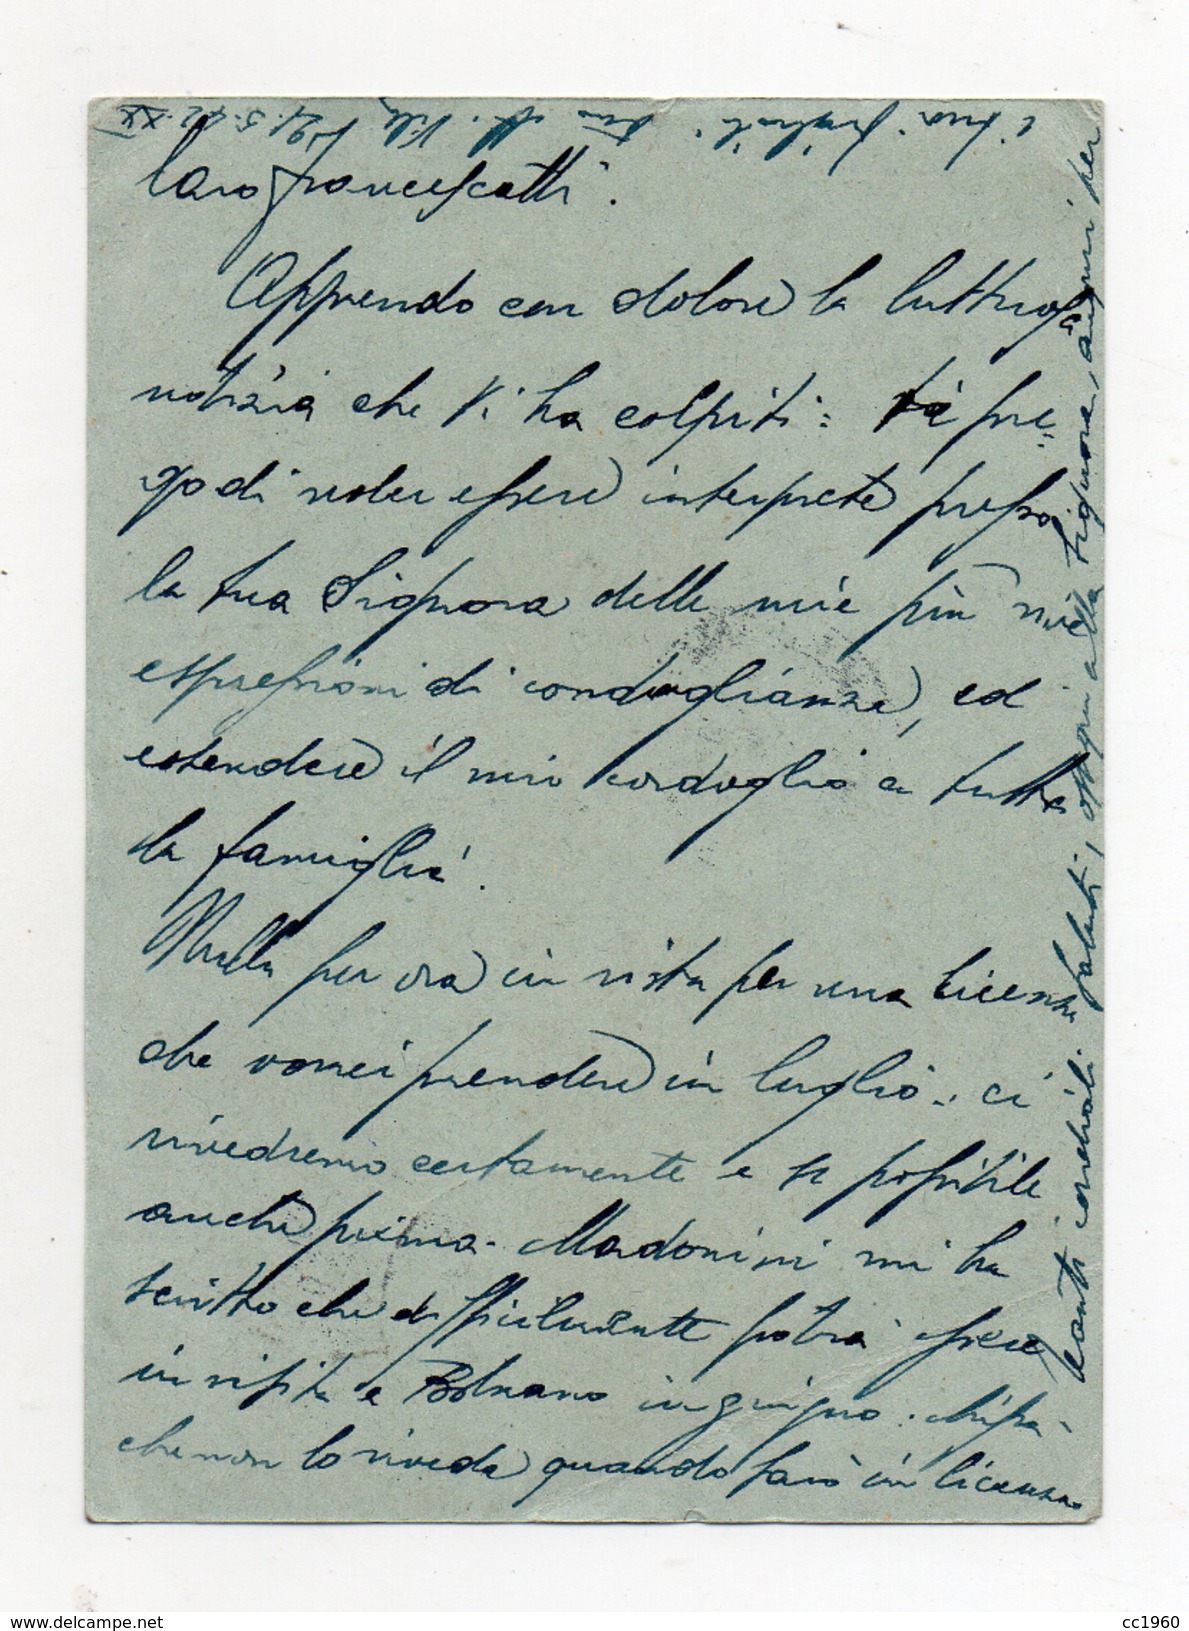 Caro Francescotti.
Apprendo con dolore la luttuosa
notizia che Vi ha colpiti: ti pre=
go di voler essere interprete presso
la tua Signora delle mie più vive
espressioni di condoglianze, ed
estendere il mio cordoglio a tutta
la famiglia.
Nulla per ora in vista per una licenza
che vorrei prendere in luglio: ci
rivedremo certamente e se possibile
anche prima. Madonini mi ha
scritto che difficilmente potrà essere
in visita a Bolzano in giugno. Chissà
che non lo riveda quando sarò in licenza
Tanti cordiali saluti, ossequi alla Signora, auguri per
i tuoi
tuo
21.5.42.XX
www.delcampe.net
cc1960